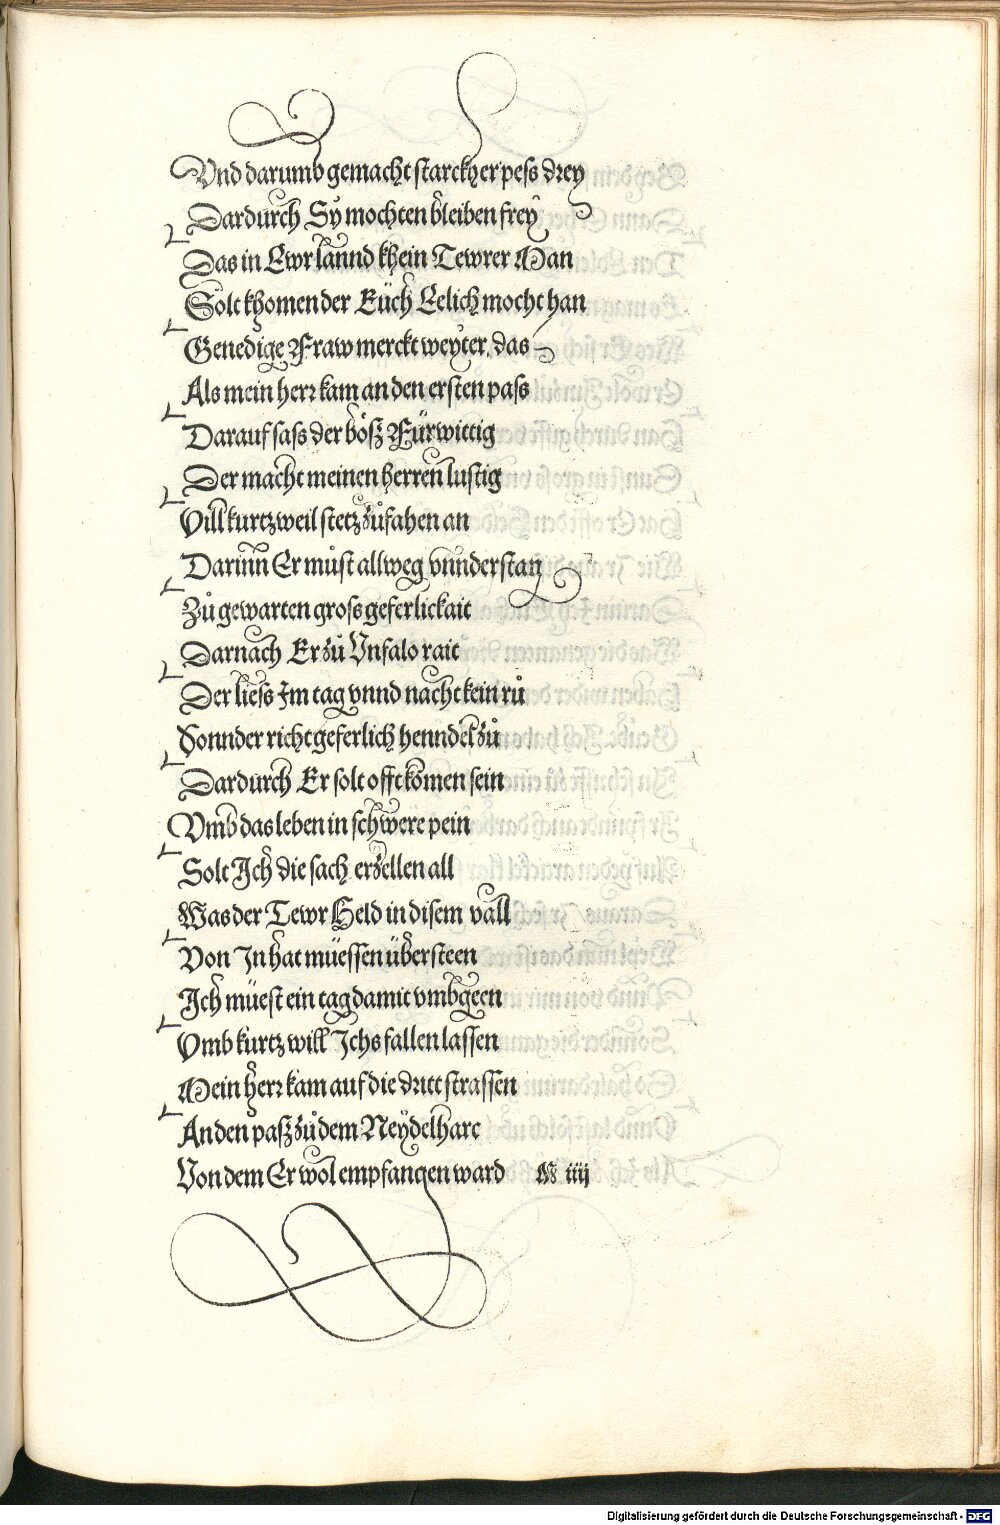 Vnd darumb gemacht starckher pess drey
Dardurch Sy mochten bleiben frey
Das in Ewr lannd khein Tewrer Man
Solt khomen der Eüch Eelich mocht han
Genedige Fraw merckt weyter das
Als mein herr kam an den ersten pass
Darauf sass der bösz Fürwittig
Der macht meinen herren lustig
Vill kurtzweil stetz zůfahen an
Darinn Er můst allweg vnnderstan
Zů gewarten gross geferlickait
Darnach Er zů Vnfalo rait
Der liess Im tag vnnd nacht kein rů
Sonnder richt geferlich henndel zů
Dardurch Er solt offt komen sein
Vmb das leben in schwere pein
Solt Ich die sach erzellen all
Was der Tewr Held in disem vall
Von In hat müessen übersteen
Ich müest ein tag damit vmbgeen
Vmb kurtz will Ichs fallen lassen
Mein herr kam auf die dritt strassen
An den pasz zů dem Neydelhart
Von dem Er wol empfangen ward iiij
Digitalisierung gefördert durch die Deutsche Forschungsgemeinschaft - DFG